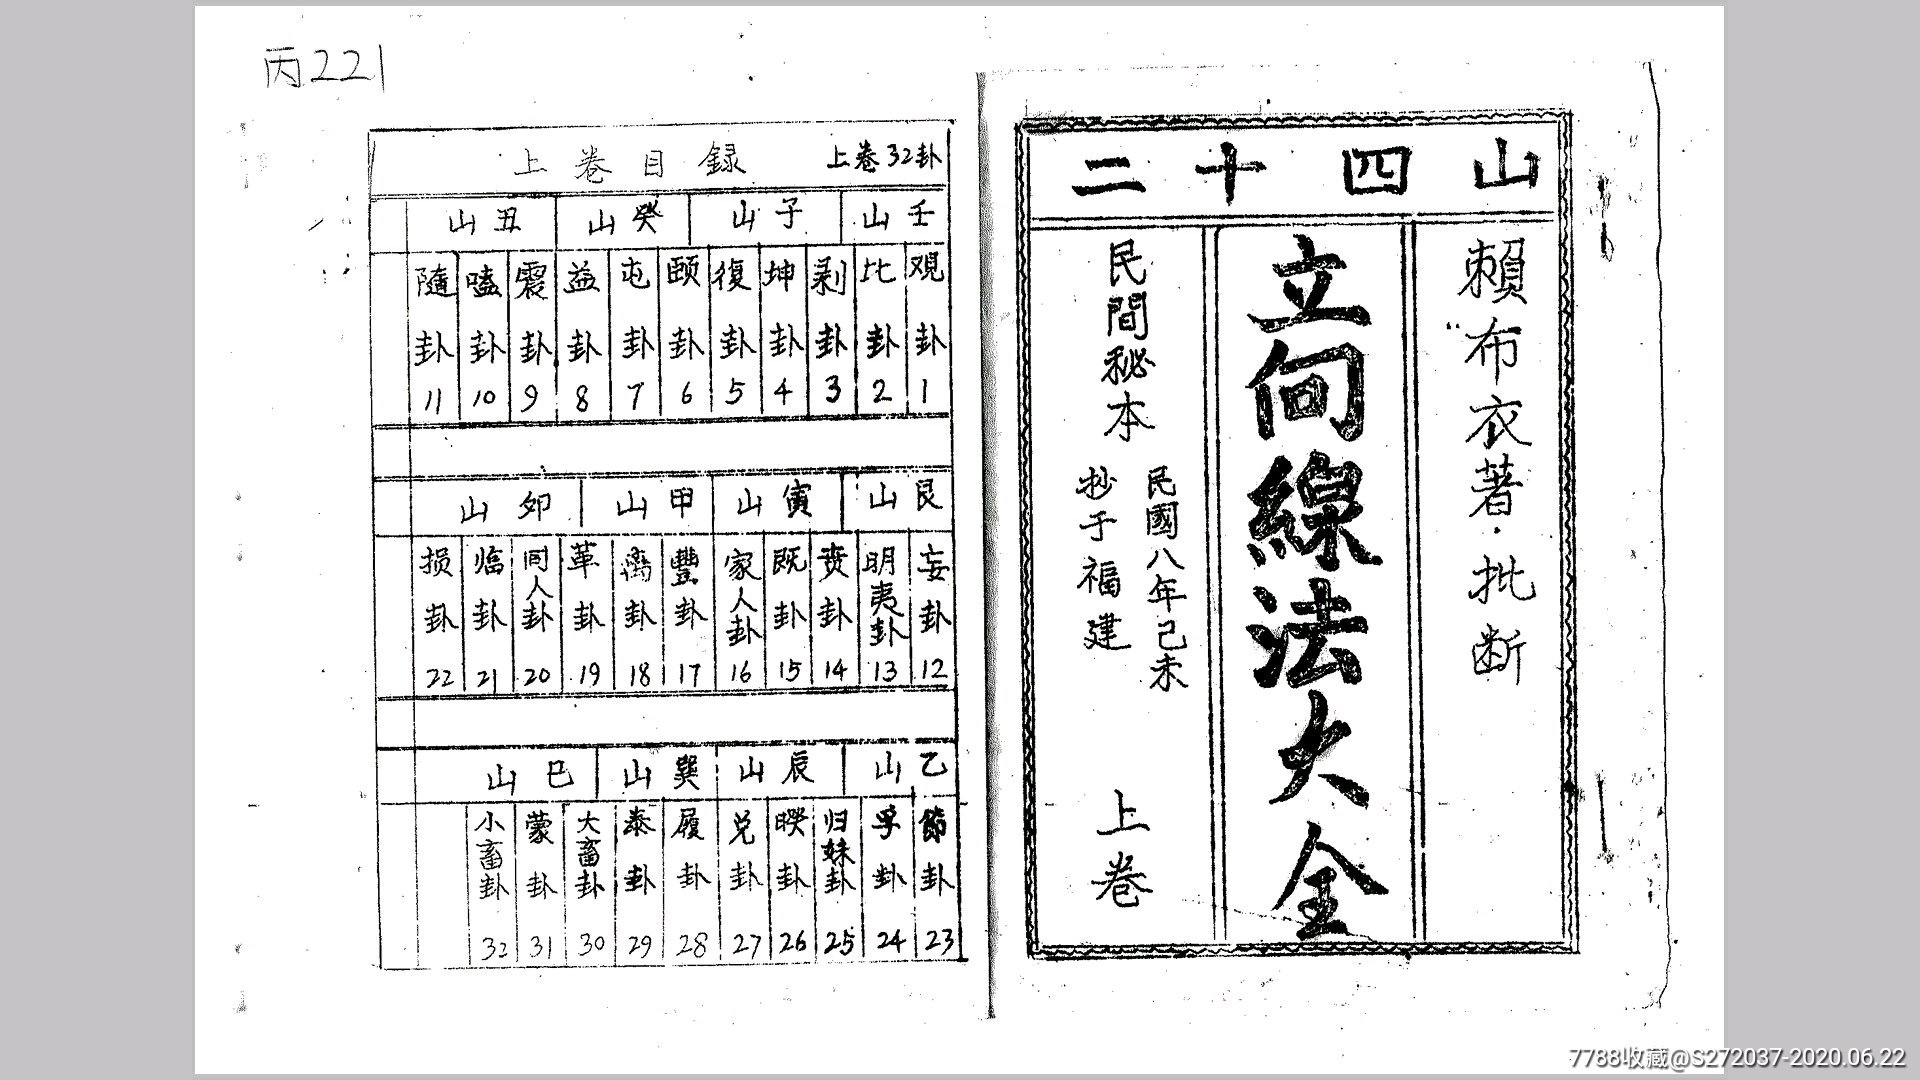 丙221
山四十二
賴布衣著·批断
立向線法大全
民間秘本
民國八年己未
抄于福建
上卷
上卷目録
上卷32卦
壬山
子山
癸山
丑山
观卦1
比卦2
剥卦3
坤卦4
復卦5
颐卦6
屯卦7
益卦8
震卦9
嗑卦10
隨卦11
艮山
寅山
甲山
卯山
妄卦12
明夷卦13
贲卦14
既卦15
家人卦16
豐卦17
离卦18
革卦19
同人卦20
临卦21
损卦22
乙山
辰山
巽山
巳山
節卦23
孚卦24
归妹卦25
睽卦26
兑卦27
履卦28
泰卦29
大畜卦30
蒙卦31
小畜卦32
7788收藏@S272037-2020.06.22